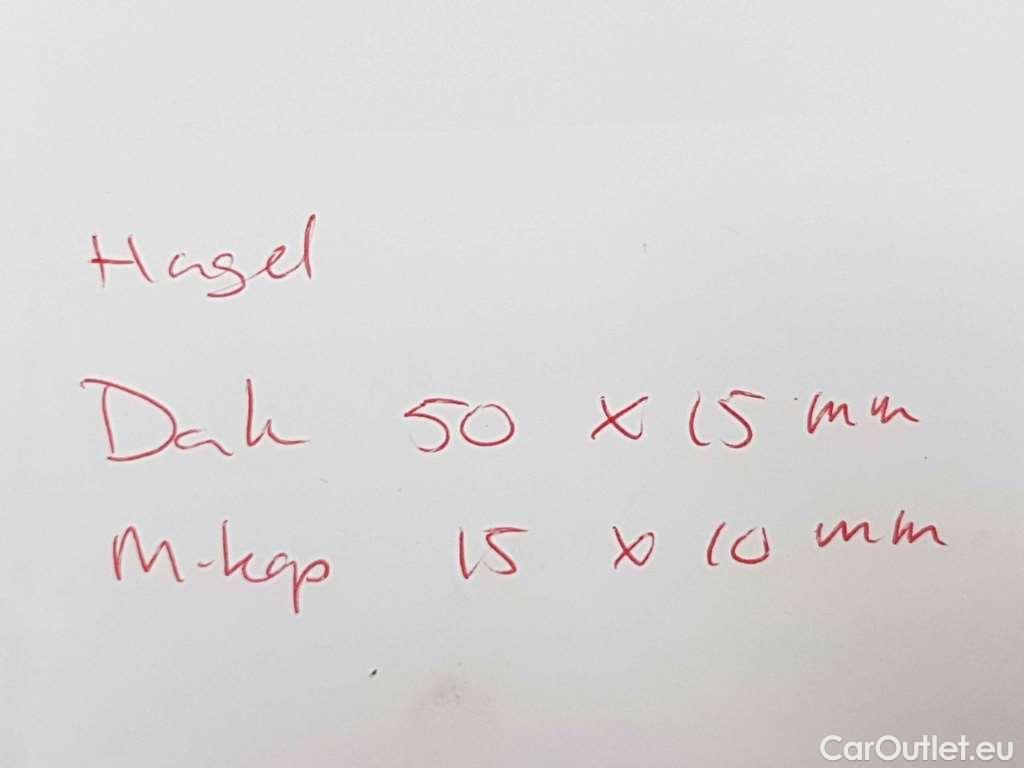 Hagel
Dak 50 x 15 mm
M-kap 15 x 10 mm
CarOutlet.eu